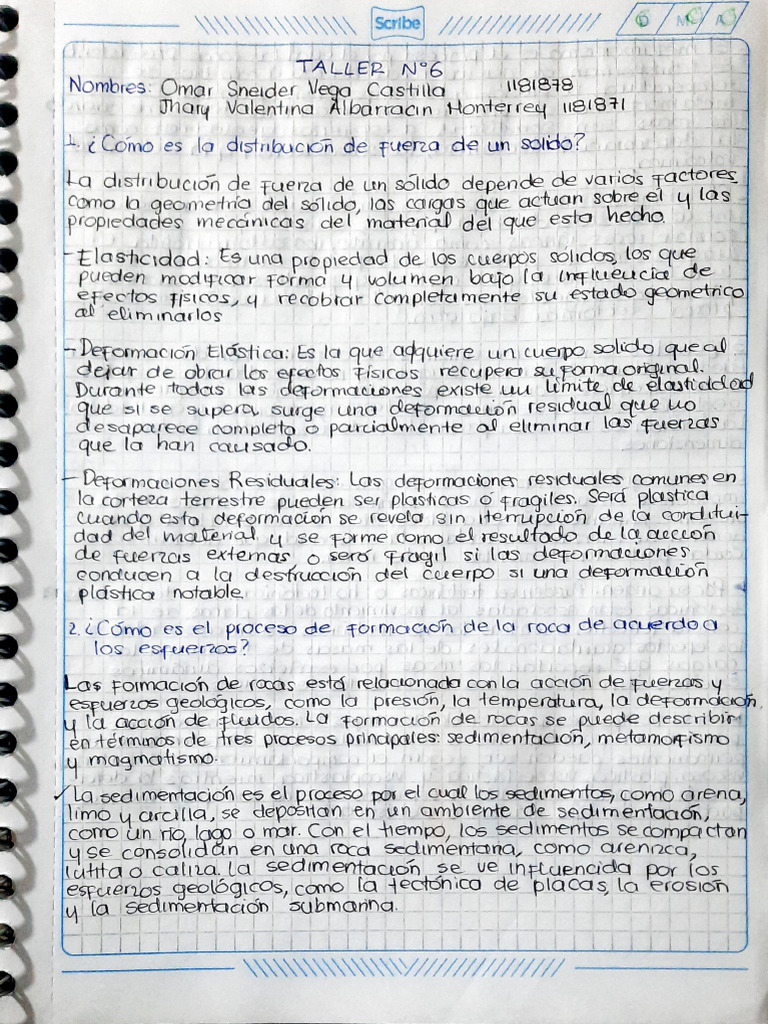 Scribe
TALLER N°6
Nombres: Omar Sneider Vega Castilla 1181878
Jhary Valentina Albarracin Monterrey 1181871
1. ¿Cómo es la distribución de fuerza de un solido?
La distribución de fuerza de un sólido depende de varios factores
como la geometría del sólido, las cargas que actuan sobre el y las
propiedades mecánicas del material del que esta hecho
- Elasticidad: Es una propiedad de los cuerpos solidos, los que
pueden modificar forma y volumen bajo la influencia de
efectos físicos, y recobrar completamente su estado geometrico
al eliminarlos
- Deformación Elástica: Es la que adquiere un cuerpo solido que al
dejar de obrar los efectos físicos recupera su forma original.
Durante todas las deformaciones existe un límite de elasticidad
que si se supera surge una deformación residual que no
desaparece completo o parcialmente al eliminar las fuerzas
que la han causado.
- Deformaciones Residuales: Las deformaciones residuales comunes en
la corteza terrestre pueden ser plasticas o fragiles. Será plastica
cuando esta deformación se revela sin iterrupción de la contitui-
dad del material y se forme como el resultado de la acción
de fuerzas externas, o será fragil si las deformaciones
conducen a la destrucción del cuerpo si una deformación
plástica notable.
2. ¿Cómo es el proceso de formación de la roca de acuerdo a
los esfuerzos?
Las formación de rocas está relacionada con la acción de fuerzas y
esfuerzos geológicos, como la presión, la temperatura, la deformación
y la acción de fluidos. La formación de rocas se puede describir
en términos de tres procesos principales: sedimentación, metamorfismo
y magmatismo.
✓ La sedimentación es el proceso por el cual los sedimentos, como arena,
limo y arcilla, se depositan en un ambiente de sedimentación,
como un río, lago o mar. Con el tiempo, los sedimentos se compactan
y se consolidan en una roca sedimentaria, como arenizca,
lutita o caliza. La sedimentación se ve influencida por los
esfuerzos geológicos, como la tectónica de placas, la erosión
y la sedimentación submarina.